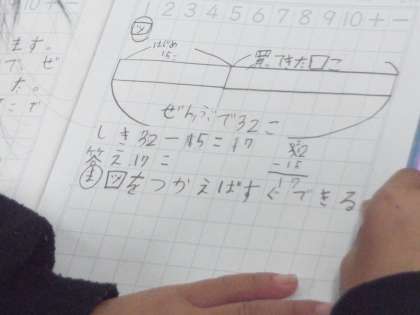 1 2 3 4 5 6 7 8 9 10 + -
図
はじめ
15こ
買ってきた□こ
ぜんぶで32こ
しき 32-15=17
32
-15
17
答え 17こ
ま 図をつかえばすぐできる
10+-
ます。
で、ぜ
た。